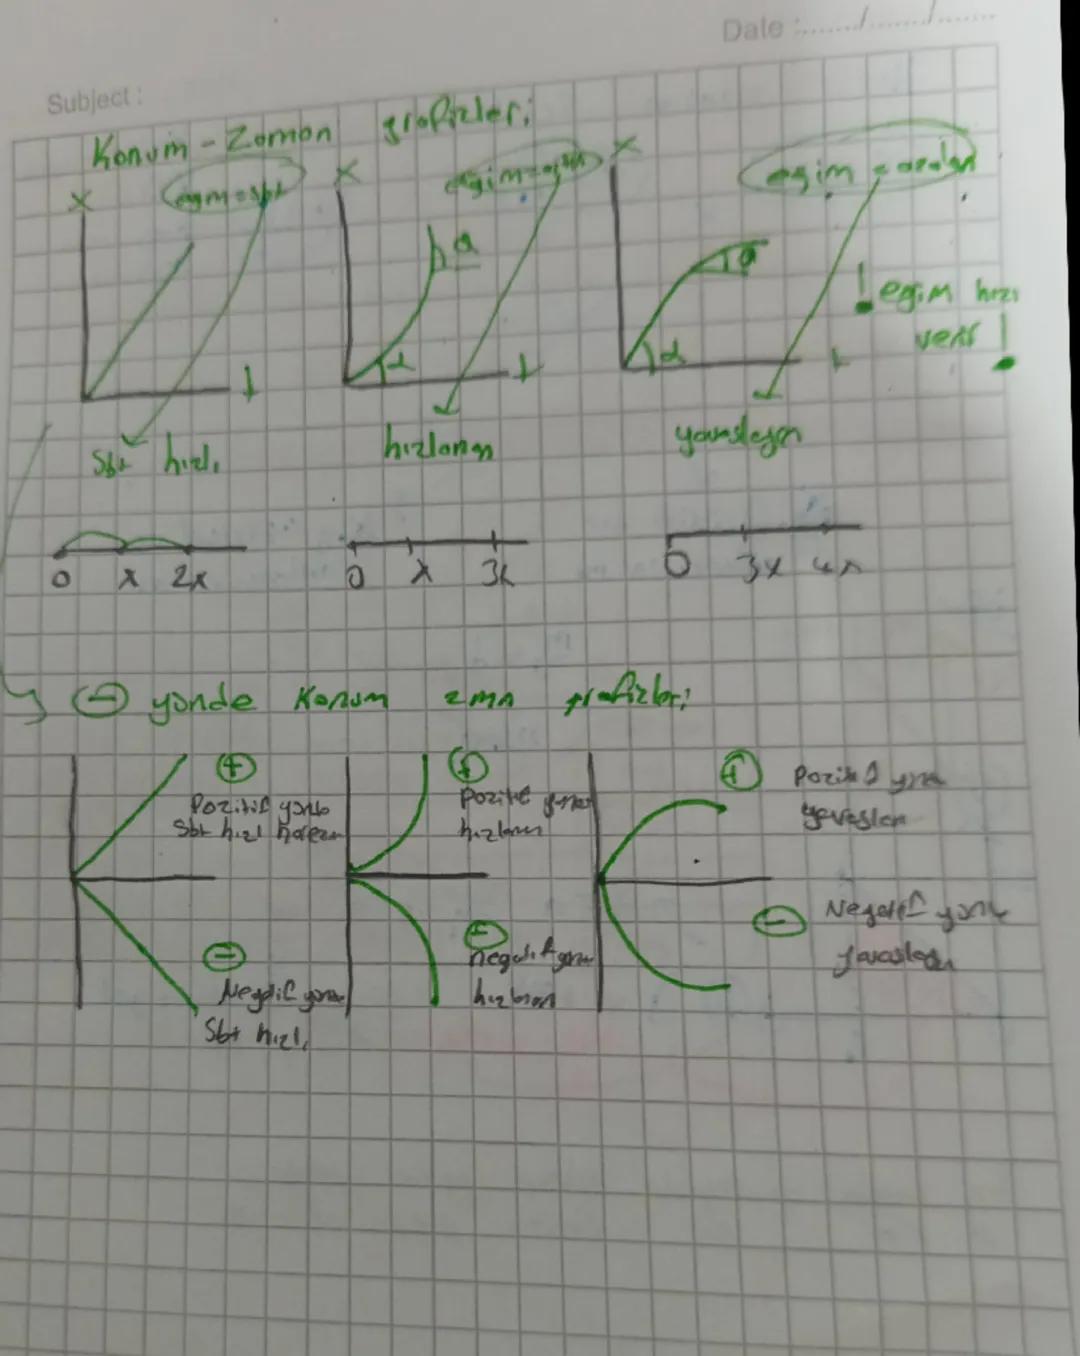 Date :....../....../......
Subject :
Konum - Zaman grafikleri
x eğim = sbt x x eğim = azalan
α α
! eğim hızı
verir !
α α
t t t
Sbt hızlı hızlanan yavaşlayan
0 x 2x 0 x 3x 0 3x 4x
(-) yönde Konum zmn grafikleri
+ Pozitif yönde
Sbt hızlı
+ Pozitif yönde
hızlanan
+ Pozitif yönde
yavaşlan
- Negatif yönde
Sbt hızlı
- negatif yönde
hızlanan
- Negatif yönde
yavaşlayan